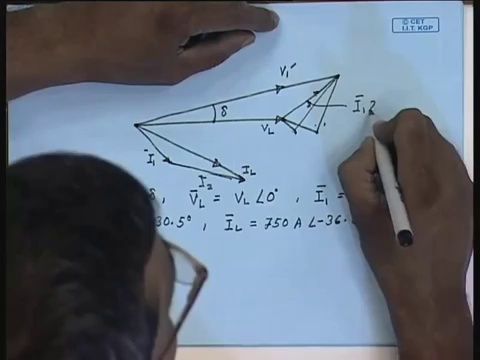 © CET
I.I.T. KGP
V₁'
δ
V_L
Ī₁ z
Ī₁
I₂
I_L
δ , V̄_L = V_L ∠0° , Ī₁ =
30.5° , Ī_L = 750 A ∠-36.